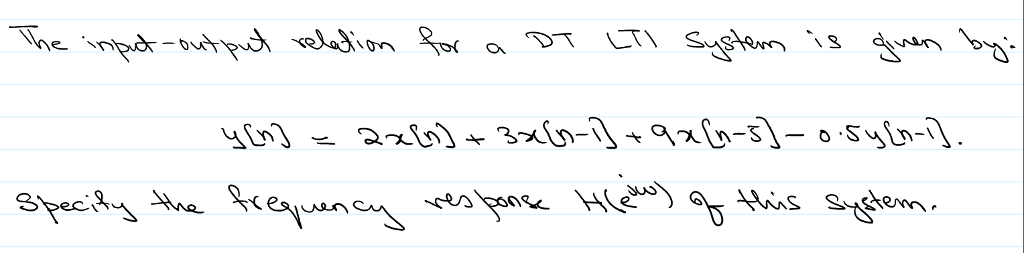 The input-output relation for a DT LTI system is given by:
y[n] = 2x[n] + 3x[n-1] + 9x[n-5] - 0.5y[n-1].
Specify the frequency response H(e^jω) of this system.